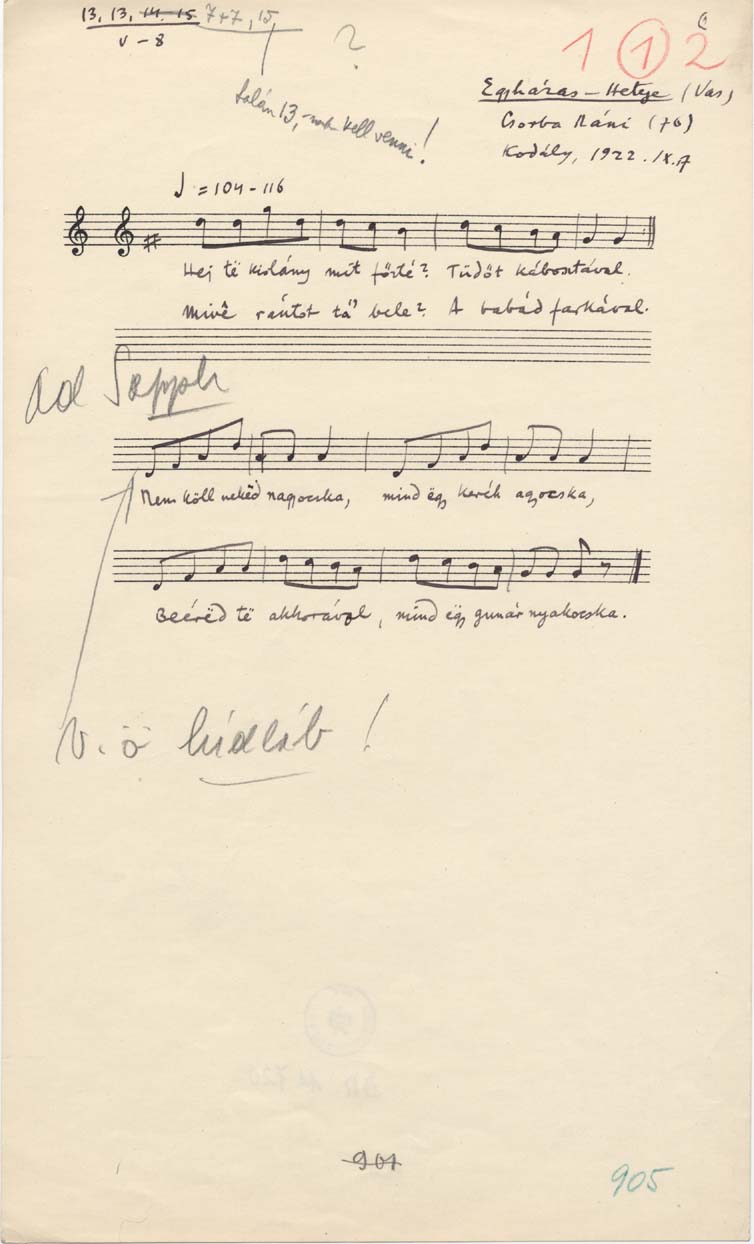 13, 13, 14. 15 7+7, 15,
V – 8
?
talán 13, -nak kell venni!
1 1 2
Egyházas – Hetye (Vas)
Csorba Náni (76)
Kodály, 1922. IX. 7
♩ = 104 - 116
Hej të kislány mit főtté? Tüdőt kábosztával.
Mivê rántot tá' bele? A babád farkával.
ad
Nem köll nekëd nagyocska, mind ëgy kerék agyocska,
Beérëd të akkorával, mind ëgy gunár nyakocska.
V. ö hídláb!
901
905